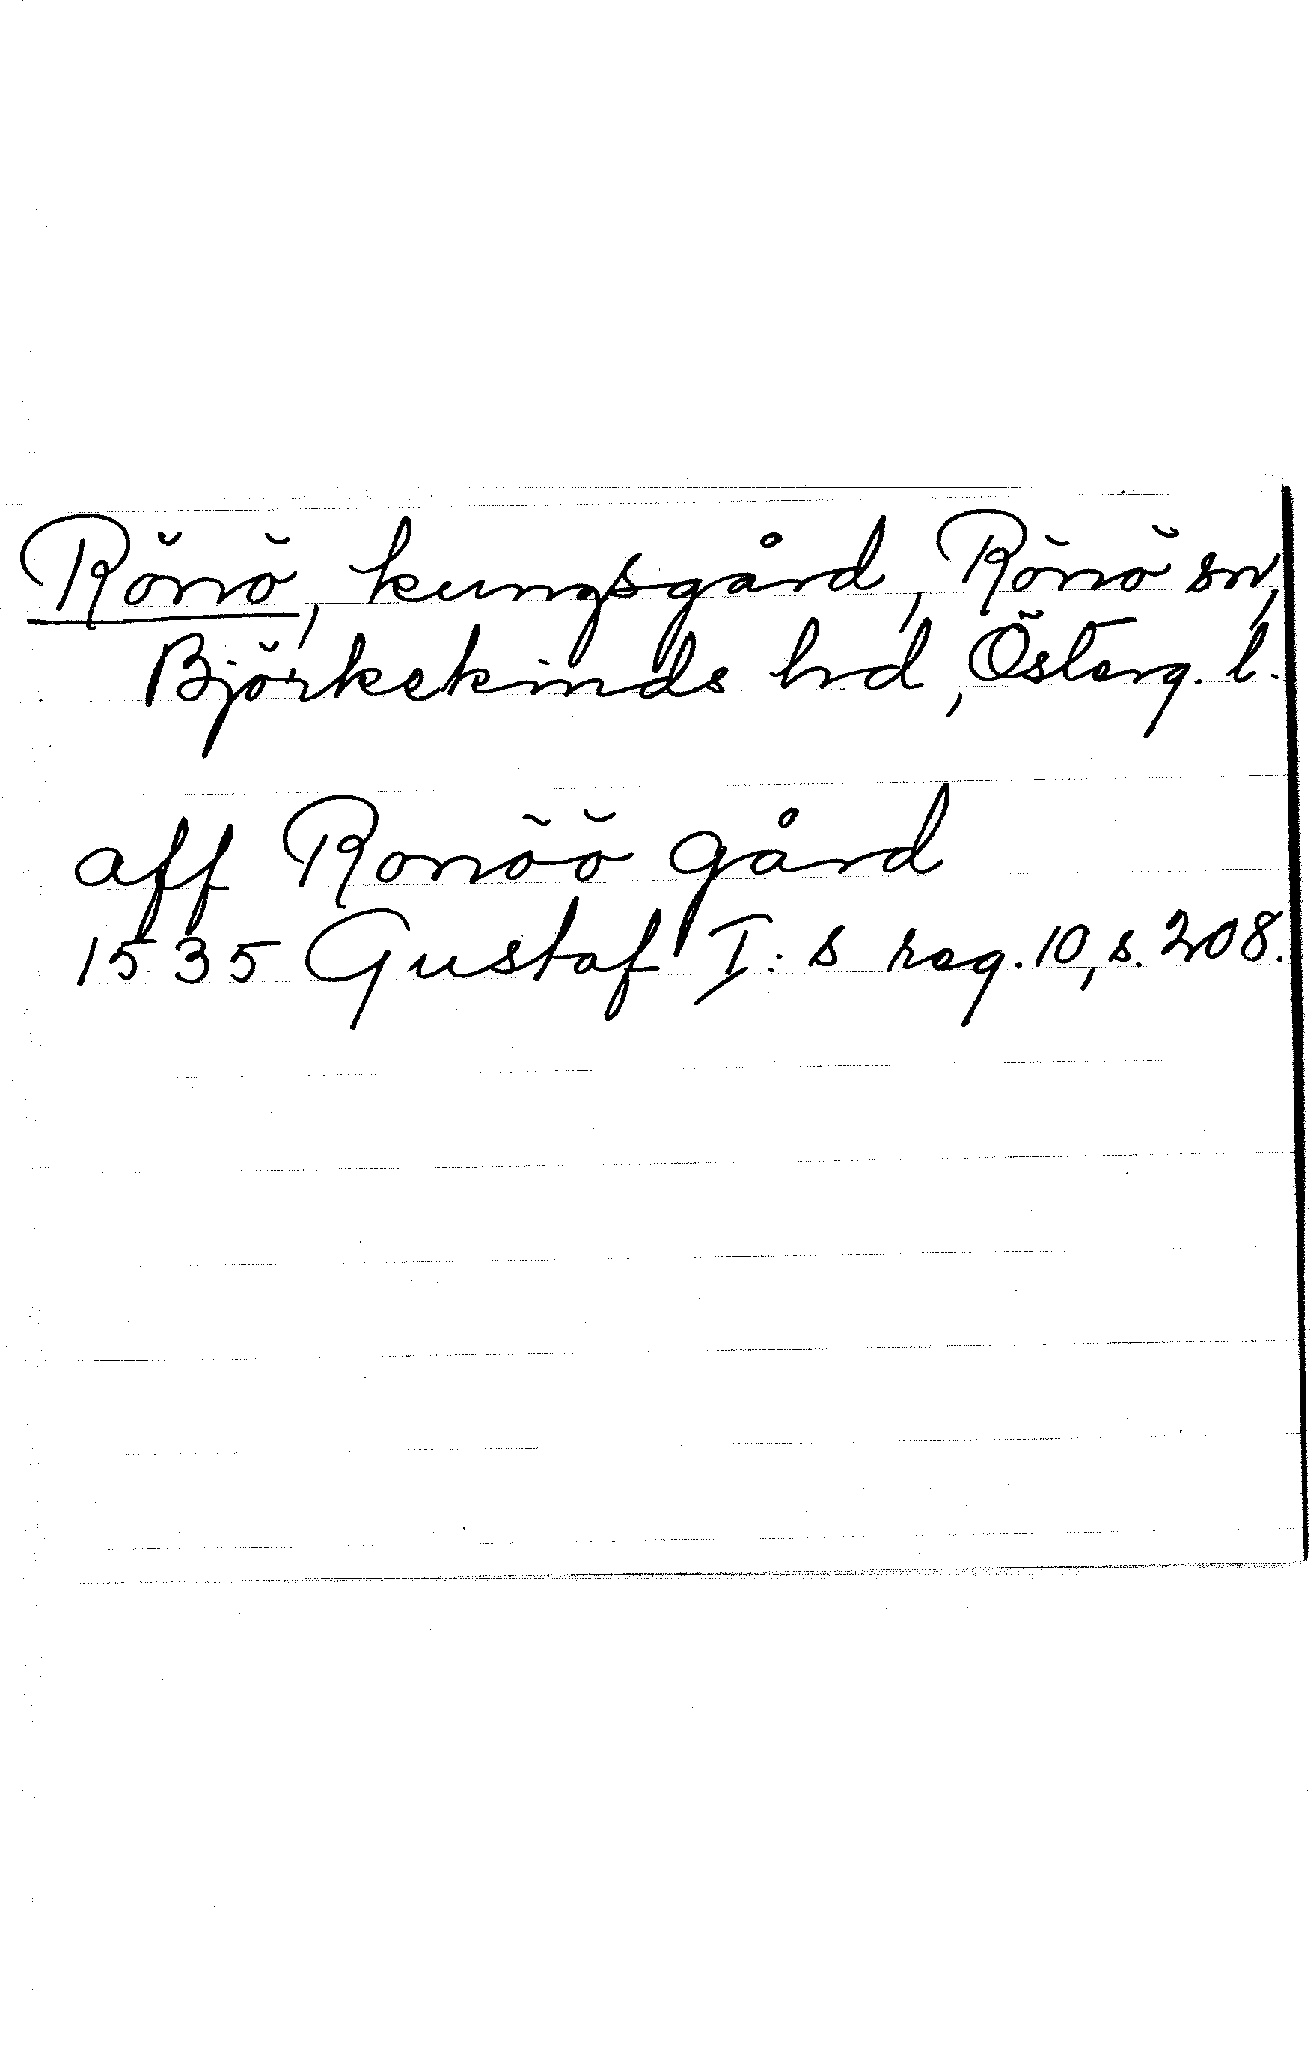 Rönö, kungsgård, Rönö sn,
Björkekinds hd, Österg. l.
aff Ronöö gård
1535 Gustaf I:s reg. 10, s. 208.